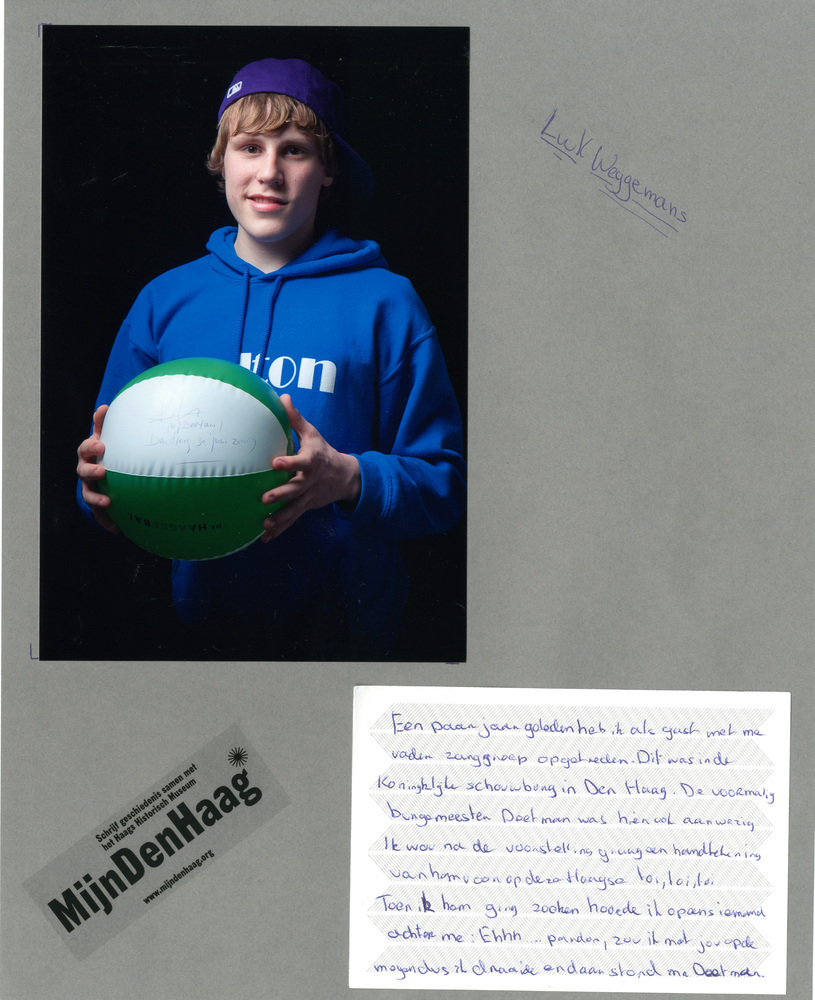 Luuk Weggemans
ton
Den Haag 30 juni 2007
HAAGSE BAL
Schrijf geschiedenis samen met
het Haags Historisch Museum
MijnDenHaag
www.mijndenhaag.org
Een paar jaar geleden heb ik als gast met me
vader zanggroep opgetreden. Dit was in de
Koninklijke schouwburg in Den Haag. De voormalig
burgemeester Deetman was hier ook aanwezig
Ik wou na de voorstelling graag een handtekening
van hem voor op deze Haagse toi, toi, toi
Toen ik hem ging zoeken hoorde ik opeens iemand
achter me: Ehhh ... pardon, zou ik met jou op de
mogen dus ik draaide en daar stond mr Deetman.